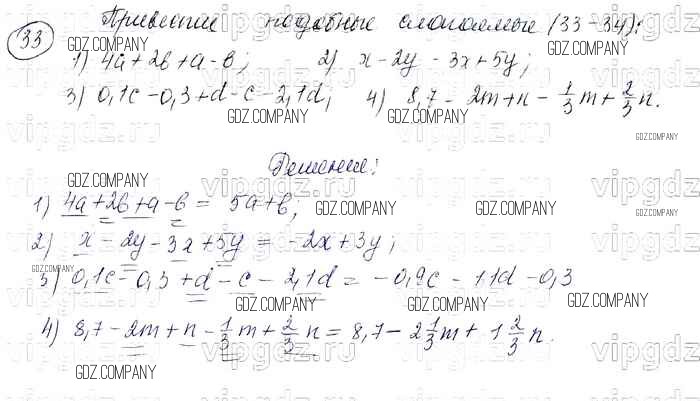 33 Привести подобные слагаемые (33-34):
1) 4a+2b+a-b; 2) x-2y-3x+5y;
3) 0,1c-0,3+d-c-2,1d; 4) 8,7-2m+n-1/3m+2/3n.
Решение:
1) 4a+2b+a-b = 5a+b;
2) x-2y-3x+5y = -2x+3y;
3) 0,1c-0,3+d-c-2,1d = -0,9c-1,1d-0,3
4) 8,7-2m+n-1/3m+2/3n = 8,7-2 1/3m+1 2/3n.
GDZ.COMPANY
vipgdz